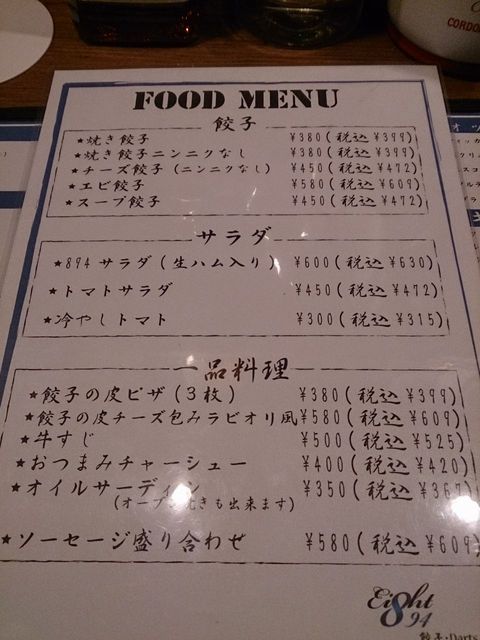 CORDO
FOOD MENU
餃子
★焼き餃子 ¥380(税込 ¥399)
★焼き餃子ニンニクなし ¥380(税込 ¥399)
★チーズ餃子(ニンニクなし) ¥450(税込 ¥472)
★エビ餃子 ¥580(税込 ¥609)
★スープ餃子 ¥450(税込 ¥472)
サラダ
★894サラダ(生ハム入り) ¥600(税込 ¥630)
★トマトサラダ ¥450(税込 ¥472)
★冷やしトマト ¥300(税込 ¥315)
一品料理
★餃子の皮ピザ(3枚) ¥380(税込 ¥399)
★餃子の皮チーズ包みラビオリ風 ¥580(税込 ¥609)
★牛すじ ¥500(税込 ¥525)
★おつまみチャーシュー ¥400(税込 ¥420)
★オイルサーディン ¥350(税込 ¥367)
(オーブン焼きも出来ます)
★ソーセージ盛り合わせ ¥580(税込 ¥609
Ei8ht
94
餃子・Darts